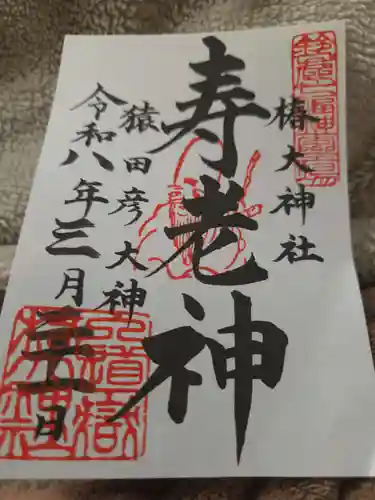 椿大神社
寿老神
猿田彦大神
令和八年三月二十一日